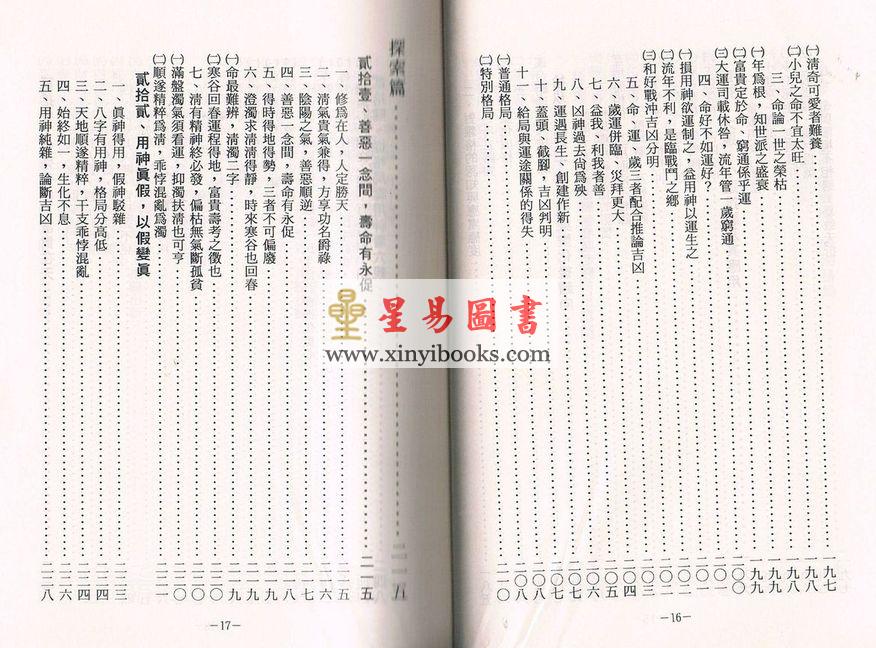 ㈠清奇可愛者難養 一九七
㈡小兒之命不宜太旺 一九八
三、命論一世之榮枯
㈠年爲根，知世派之盛衰 一九九
㈡富貴定於命，窮通係乎運 二〇〇
㈢大運司載休咎，流年管一歲窮通
四、命好不如運好？ 二〇一
㈠損用神欲運制之，益用神以運生之
㈡流年不利，是臨戰鬥之鄉 二〇二
㈢和好戰沖吉凶分明 二〇三
五、命、運、歲三者配合推論吉凶 二〇四
六、歲運併臨、災拜更大
七、益我、利我者善
八、凶神過去尚爲殃
九、運遇長生、創建作新
十、蓋頭、截腳，吉凶判明
十一、給局與運途關係的得失 二〇八
㈠普通格局 二一〇
㈡特別格局
—16—
探索篇 二一五
貳拾壹、善惡一念間，壽命有永促 二一五
一、修爲在人，人定勝天 二一五
二、清氣貴氣兼得，方享功名爵祿 二一六
三、陰陽之氣，善惡順逆 二一七
四、善惡一念間，壽命有永促 二一八
五、得時得地得勢，三者不可偏廢 二一八
六、澄濁求清清得靜，時來寒谷也回春 二一九
㈠命最難辨，清濁二字 二一九
㈡寒谷回春運程得地，富貴壽考之徵也 二二〇
七、清有精神終必發，偏枯無氣斷孤貧 二二〇
㈠滿盤濁氣須看運，抑濁扶清也可亨 二二一
㈡順遂精粹爲清，乖悖混亂爲濁 二二一
貳拾貳、用神眞假，以假變眞
一、眞神得用，假神駁雜 二二三
二、八字有用神，格局分高低 二二四
三、天地順遂精粹，干支乖悖混亂 二二四
四、始終如一，生化不息 二二六
五、用神純雜，論斷吉凶 二二八
—17—
星易圖書
www.xinyibooks.com